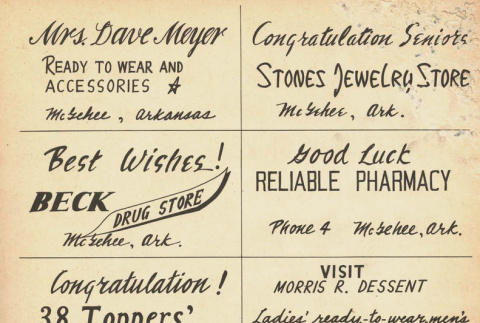 Mrs. Dave Meyer
READY TO WEAR AND
ACCESSORIES
McGehee, Arkansas
Congratulation Seniors
STONES JEWELRY STORE
McGehee, Ark.
Best Wishes!
BECK
DRUG STORE
McGehee, Ark.
Good Luck
RELIABLE PHARMACY
Phone 4 McGehee, Ark.
Congratulation!
38 Toppers'
VISIT
MORRIS R. DESSENT
Ladies' ready-to-wear, men's